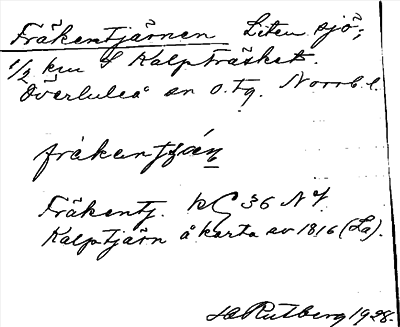 Fräkentjärnen Liten sjö;
1/2 km S Kalpträsket.
Överluleå sn o. tg. Norrb. l.
fräkentjän
Fräkentj. 36 NV
Kalptjärn å karta av 1816 (La).
H Rutberg 1928.